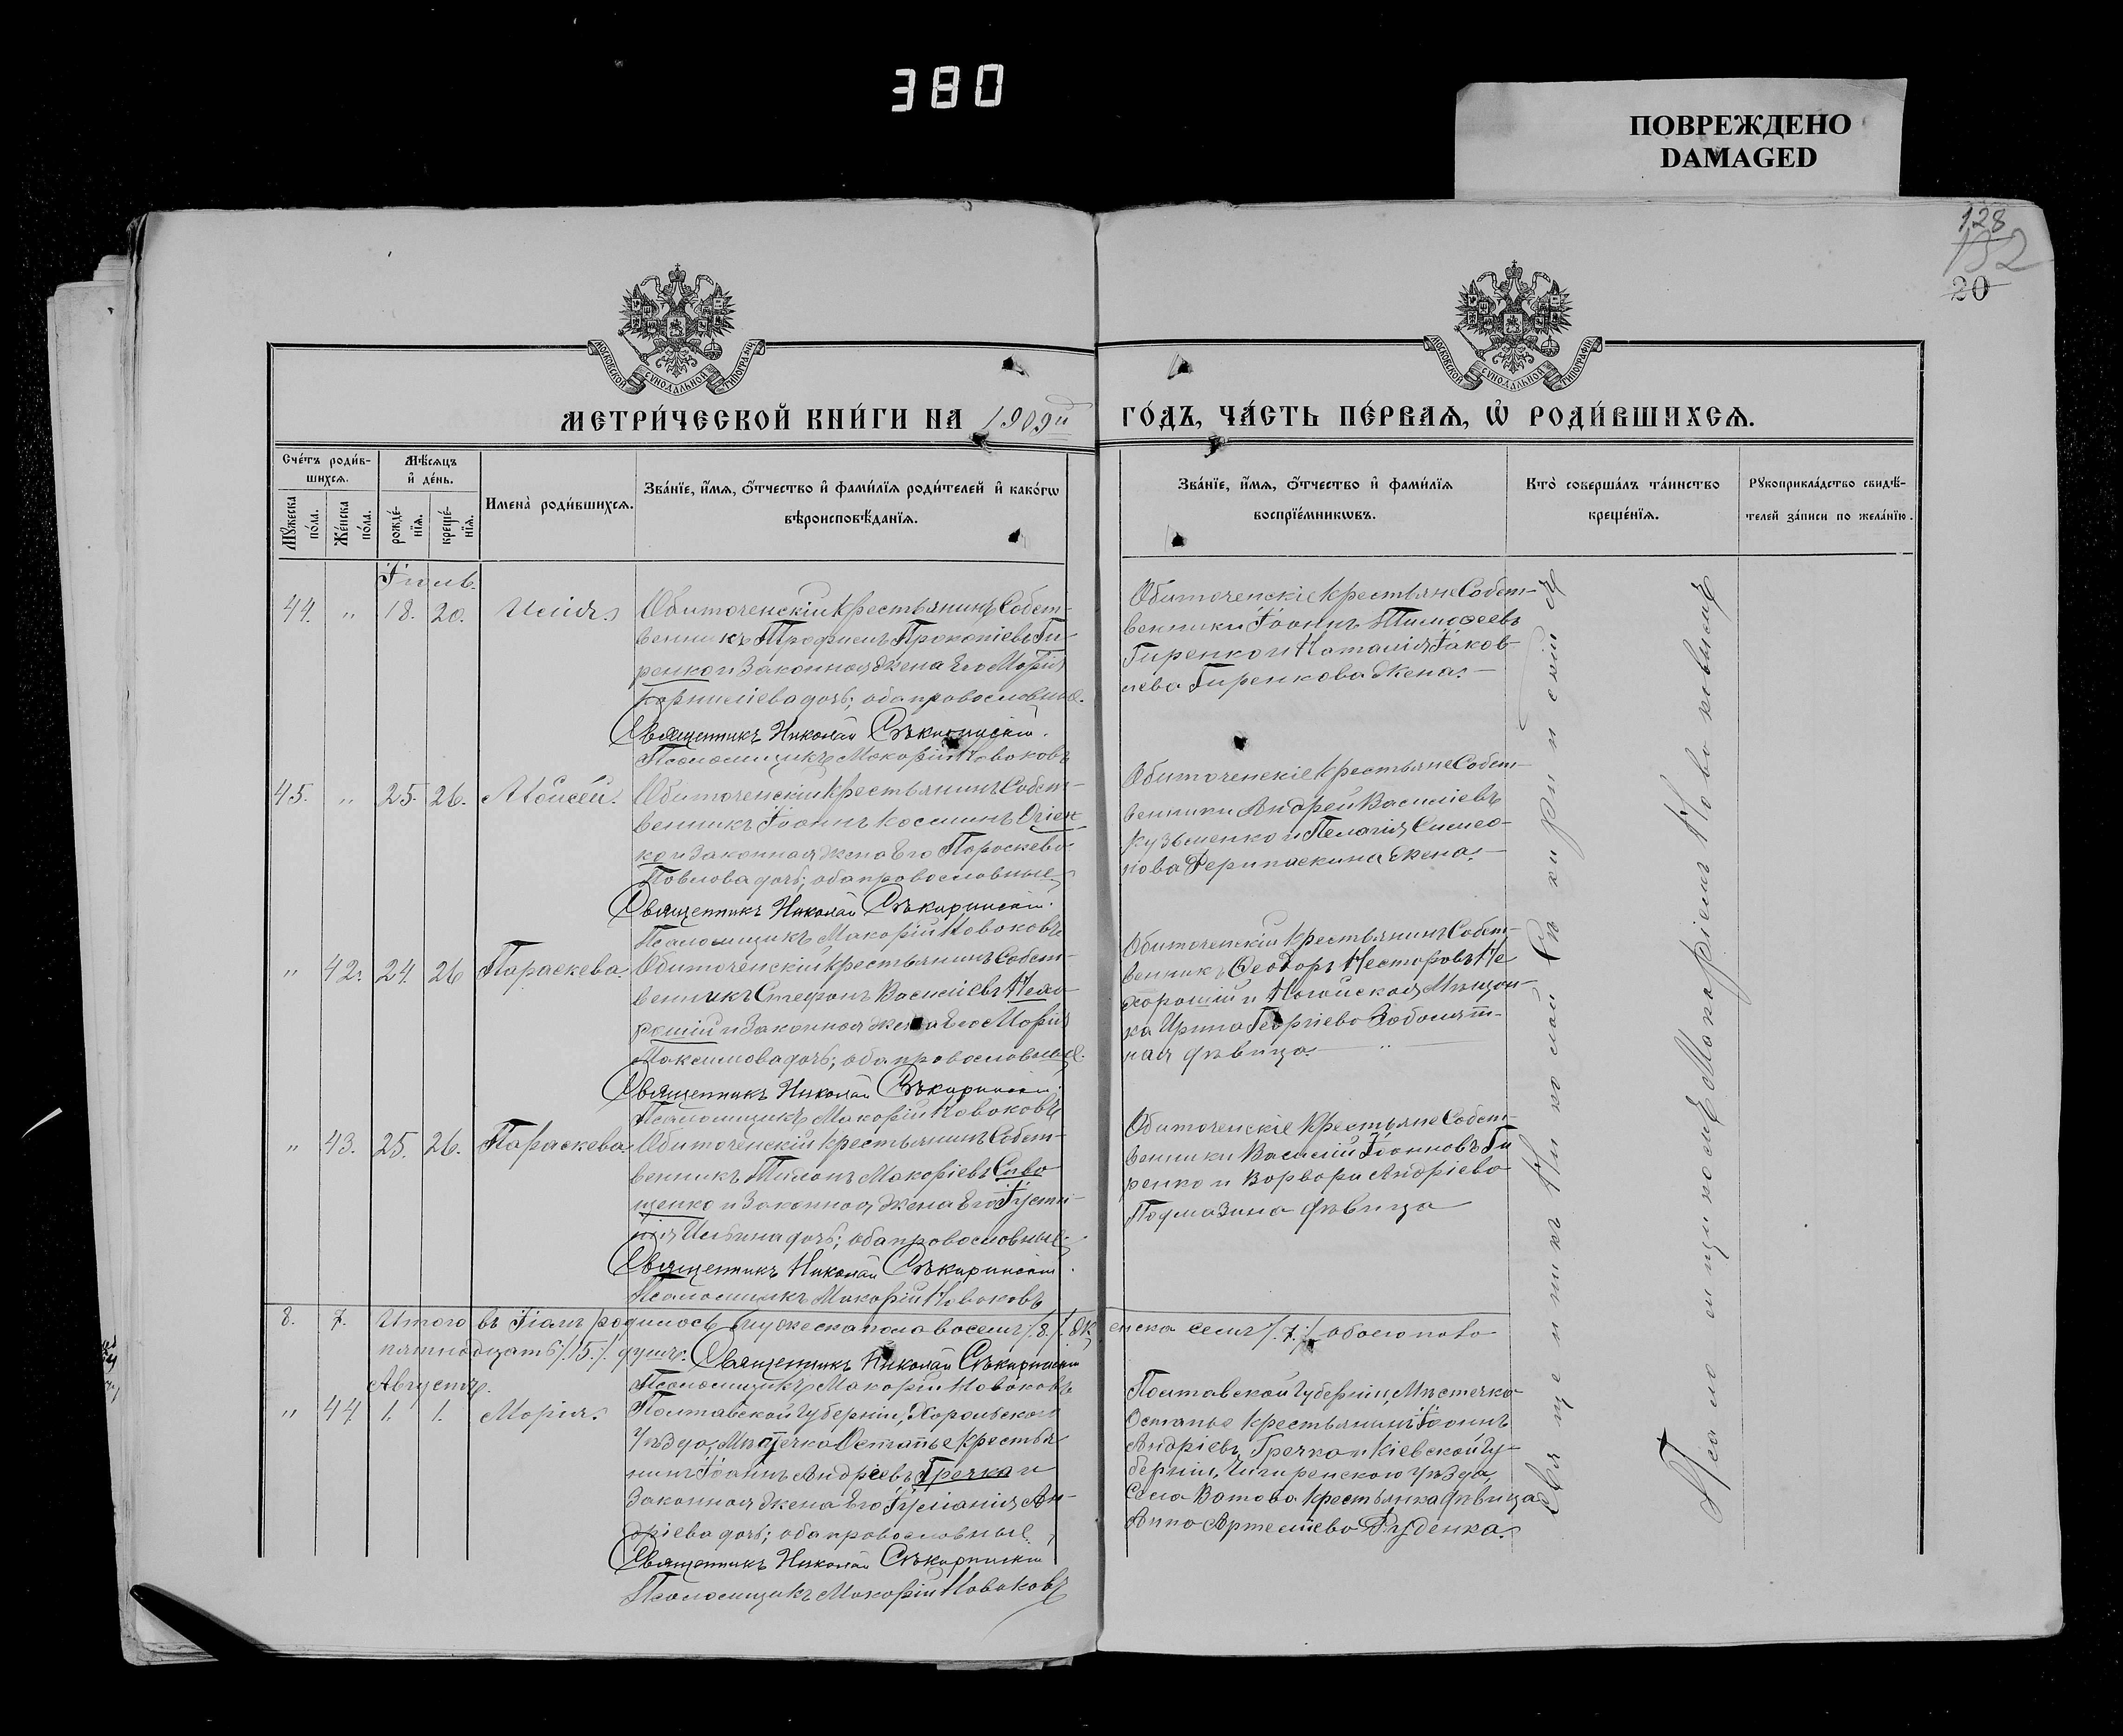 380
ПОВРЕЖДЕНО
DAMAGED
128
132
20
МОСКОВСКОЙ СѴНОДАЛЬНОЙ ТИПОГРАФІИ
МОСКОВСКОЙ СѴНОДАЛЬНОЙ ТИПОГРАФІИ
МЕТРИ́ЧЕСКОЙ КНИ́ГИ НА 1909й
ГО́ДЪ, ЧА́СТЬ ПЕ́РВАѦ, Ѽ РОДИ́ВШИХСѦ.
Сче́тъ роди́в-
шихсѧ.
Мѣ́сѧцъ
и҆ де́нь.
Мꙋ́жеска по́ла.
Же́нска по́ла.
рожде́-нїѧ.
креще́-нїѧ.
Имена̀ роди́вшихсѧ.
Зва́нїе, и҆́мѧ, ѻ҆́тчество и҆ фами́лїѧ роди́телей и҆ како́гѡ
вѣроисповѣ́данїѧ.
Зва́нїе, и҆́мѧ, ѻ҆́тчество и҆ фами́лїѧ
воспрїе́мникѡвъ.
Кто̀ соверша́лъ та́инство
креще́нїѧ.
Рꙋкоприкла́дство свидѣ́-
телей за́писи по жела́нїю.
Іюль.
44. „ 18. 20. Илія. Обиточенскій крестьянинъ Собст-
венникъ Трофимъ Прокопіевъ Ги-
ренко и Законная жена Его Марія
Корниліева дочь; оба православные.
Священникъ Николай Сѣкиринскій.
Псаломщикъ Макарій Новаковъ
Обиточенскіе крестьяне Собст-
венники Іоаннъ Тимофеевъ
Гиренко и Наталія Іаков-
лева Гиренкова жена.
45. „ 25. 26. Моисей. Обиточенскій крестьянинъ Собст-
венникъ Іоаннъ Косминъ
ко и Законная жена Его Параскева
Павлова дочь; оба православные
Священникъ Николай Сѣкиринскій.
Псаломщикъ Макарій Новаковъ
Обиточенскіе крестьяне Собст-
венники Андрей Василіевъ
Кузьменко и Пелагія Симео-
нова Дерипаскина жена.
„ 42. 24. 26 Параскева. Обиточенскій крестьянинъ Собст-
венникъ Стефанъ Василіевъ Нехо-
рошій и Законная жена Его Марія
Максимова дочь; оба православные.
Священникъ Николай Сѣкиринскій.
Псаломщикъ Макарій Новаковъ
Обиточенскій крестьянинъ Собст-
венникъ Феодоръ Несторовъ Не
хорошій и Ногайская Мѣщан-
ка Ирина Георгіева
ная дѣвица. „
„ 43. 25. 26. Параскева. Обиточенскій крестьянинъ Собст-
венникъ Филонъ Макаріевъ Сиво
щенко и Законная жена Его Іусти-
нія Ильина дочь; оба православные.
Священникъ Николай Сѣкиринскій.
Псаломщикъ Макарій Новаковъ
Обиточенскіе крестьяне Собст-
венники Василій Іоанновъ Ги
ренко и Варвара Андріева
Подмазина дѣвица
8. 7. Итого въ Іюлѣ родилось Мужеска пола восемь /8./ женска семь /.7./ обоего пола
пятнадцать /.15./ душъ. Священникъ Николай Сѣкиринскій
Псаломщикъ Макарій Новаковъ
Августъ.
„ 44 1. 1. Марія. Полтавской Губерніи, Хорольскаго
Уѣзда, Мѣстечка Остапье крестья
нинъ Іоаннъ Андріевъ Гречка и
Законная жена Его Іуліанія Ан-
дріева дочь; оба православные
Священникъ Николай Сѣкиринскій
Псаломщикъ Макарій Новаковъ
Полтавской Губерніи, Мѣстечка
Остапье крестьянинъ Іоаннъ
Андріевъ Гречка и Кіевской Гу-
берніи, Чигиренскаго Уѣзда,
Села Ватова крестьянка дѣвица
Анна Артеміева Руденка.
Священникъ Николай Сѣкиринскій
Съ псаломщикомъ Макаріемъ Новаковымъ